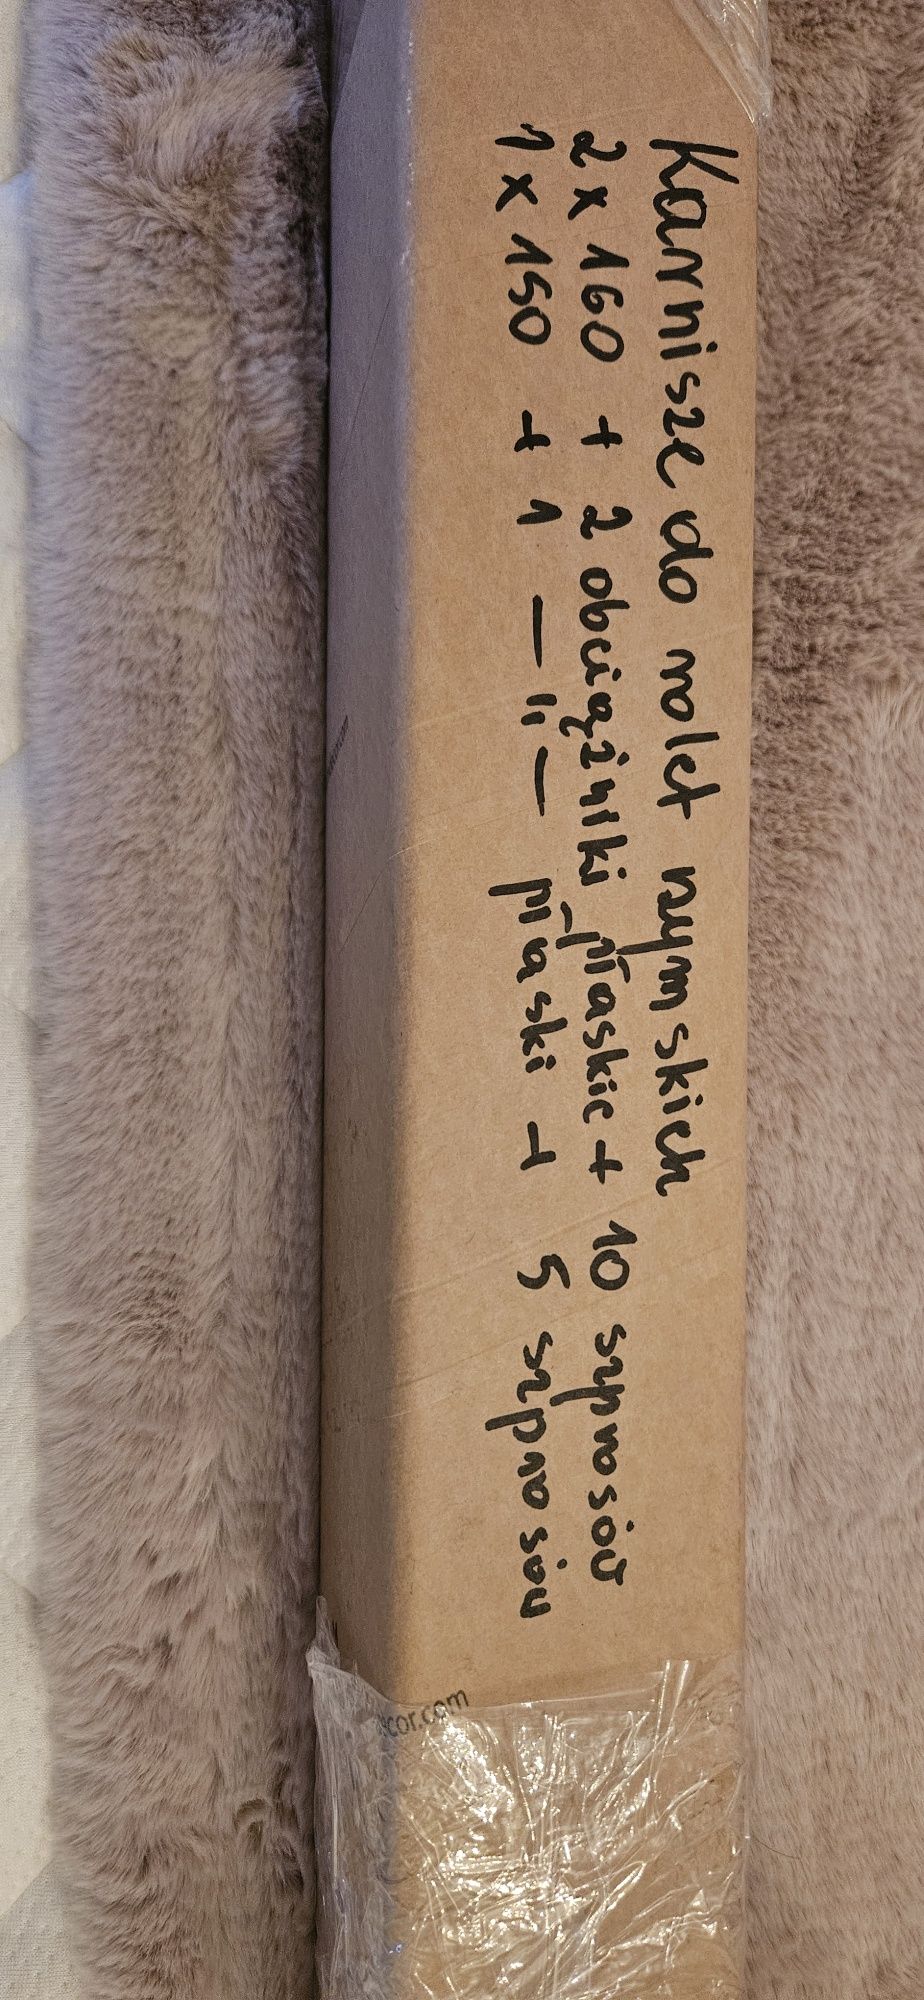 Karnisze do rolet rzymskich
2 x 160 + 2 obciążniki płaskie + 10 szprosów
1 x 150 + 1 — 11 — płaski + 5 szprosów
cor.com